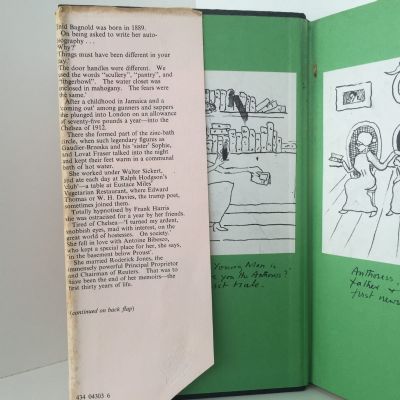 nid Bagnold was born in 1889.
On being asked to write her auto-
iography . . .
Why?'
Things must have been different in your
ay.'
The door handles were different. We
sed the words "scullery", "pantry", and
ingerbowl". The water closet was
nclosed in mahogany. The fears were
he same.'
After a childhood in Jamaica and a
coming out' among gunners and sappers
he plunged into London on an allowance
f seventy-five pounds a year—into the
Chelsea of 1912.
There she formed part of the zinc-bath
ircle, when such legendary figures as
Gaudier-Brzeska and his 'sister' Sophie,
nd Lovat Fraser talked into the night
nd kept their feet warm in a communal
ath of hot water.
She worked under Walter Sickert,
nd ate each day at Ralph Hodgson's
club'—a table at Eustace Miles'
Vegetarian Restaurant, where Edward
Thomas or W. H. Davies, the tramp poet,
ometimes joined them.
Totally hypnotised by Frank Harris
he was ostracised for a year by her friends.
Tired of Chelsea—'I turned my ardent,
nobbish eyes, mad with interest, on the
reat world of hostesses. On society.'
She fell in love with Antoine Bibesco,
who kept a special place for her, she says,
in the basement below Proust'.
She married Roderick Jones, the
mmensely powerful Principal Proprietor
nd Chairman of Reuters. That was to
ave been the end of her memoirs—the
irst thirty years of life.
(continued on back flap)
434 04303 6
Young Man is
you the Authoress?"